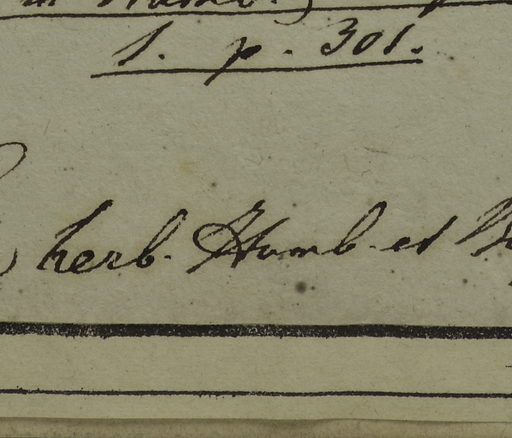 1. p. 301.
herb. Humb. et